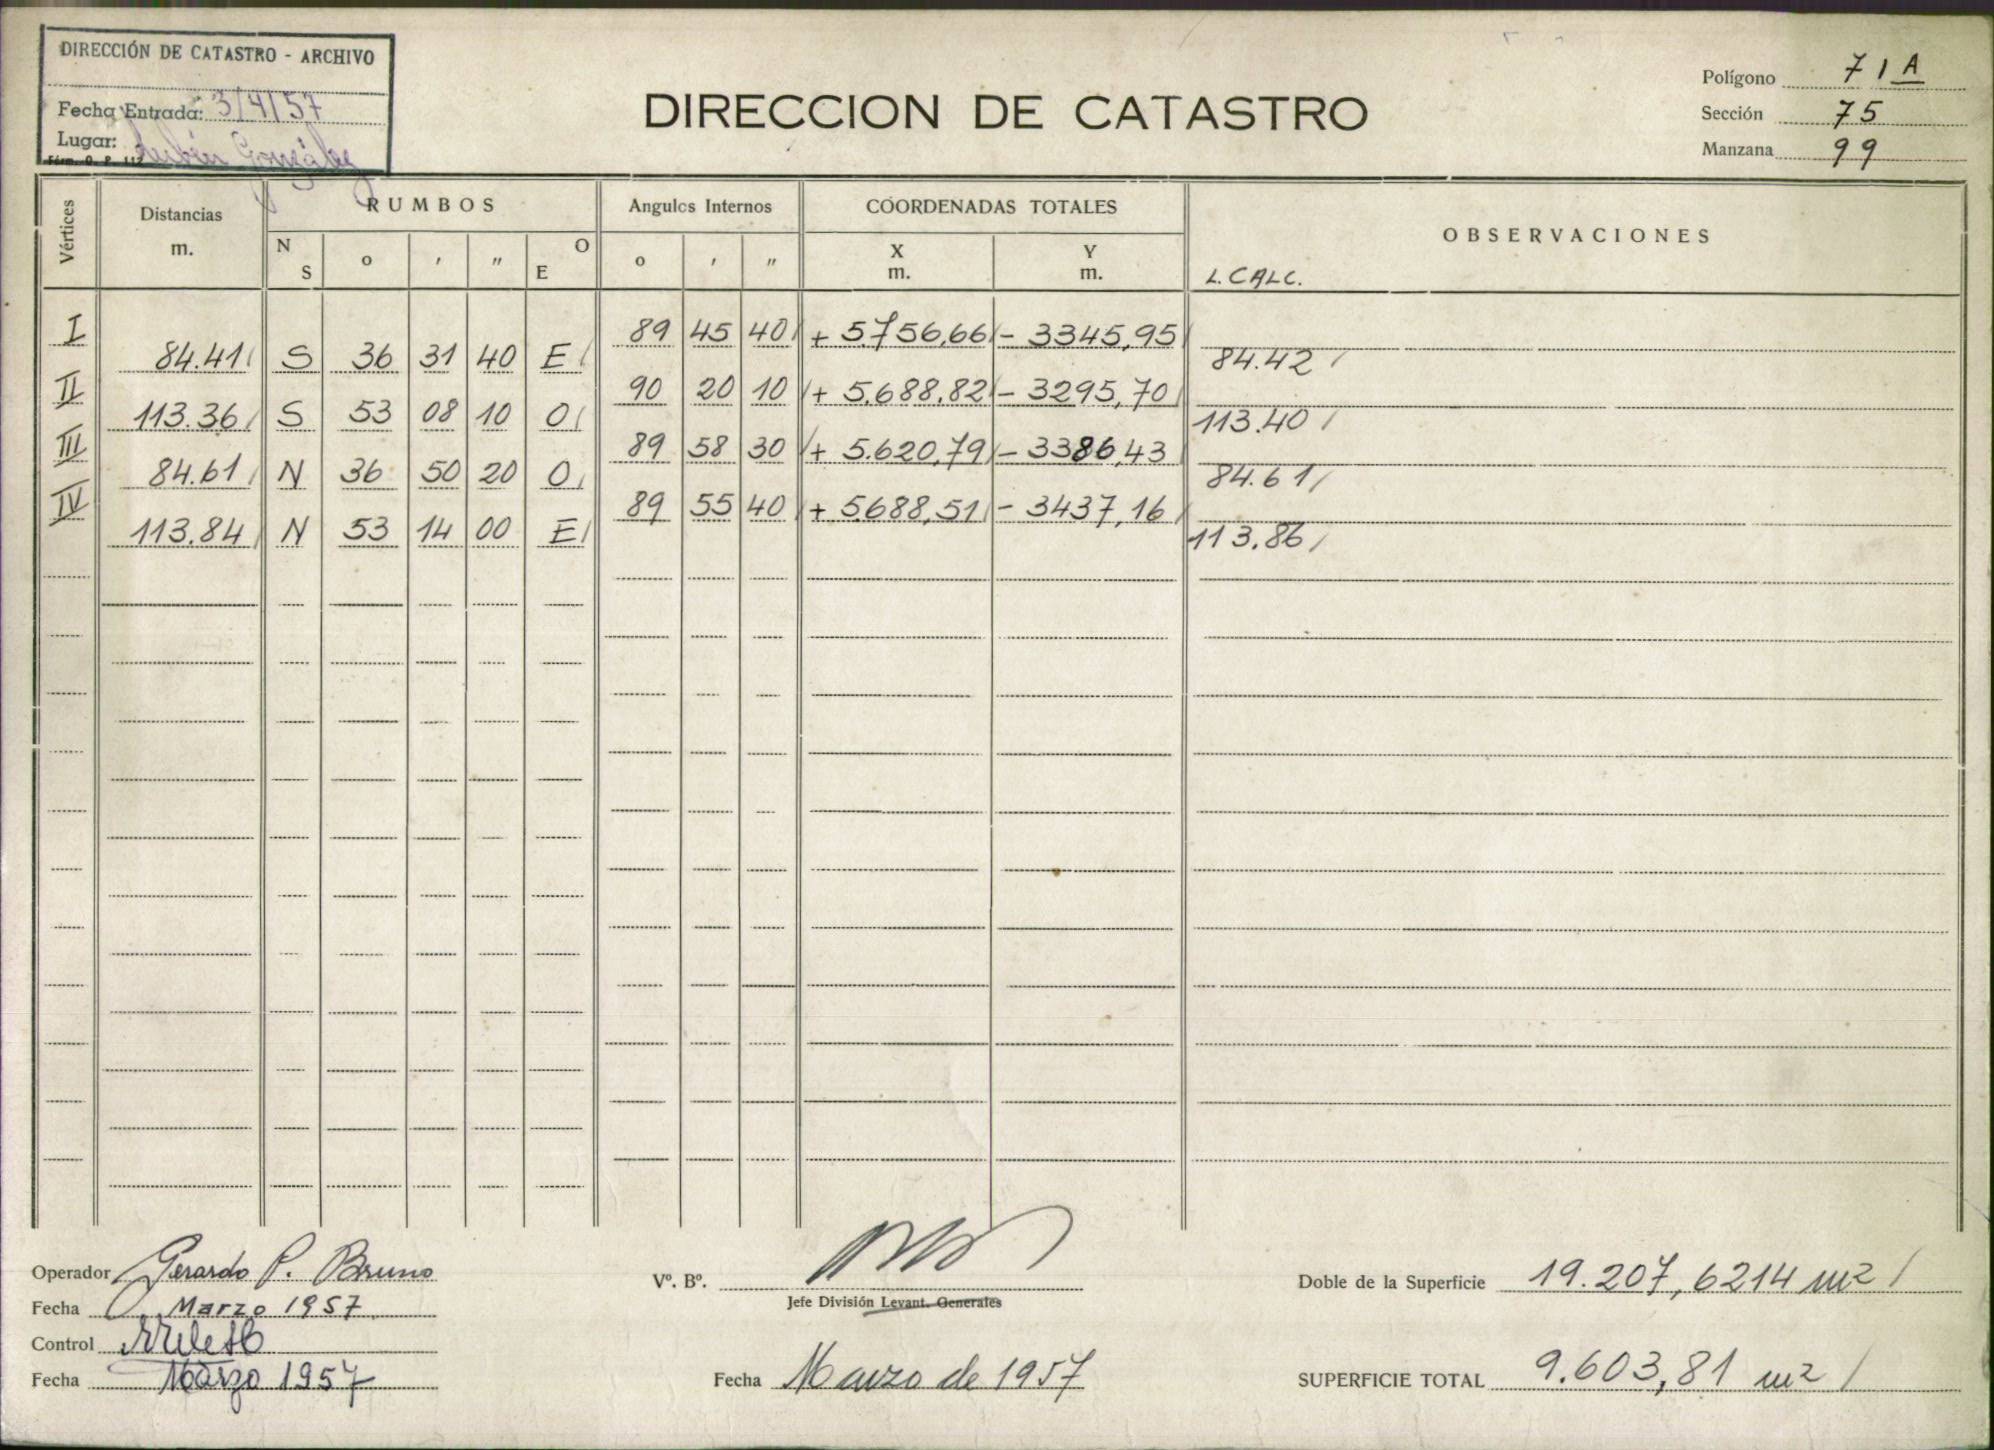 DIRECCIÓN DE CATASTRO - ARCHIVO
Fecha Entrada: 3/4/57
Lugar: Rubén González
Fórm. O. P. 112
DIRECCION DE CATASTRO
Polígono 71A
Sección 75
Manzana 99
Vértices Distancias m. RUMBOS N S o ' " O E Angulos Internos o ' " COORDENADAS TOTALES X m. Y m. OBSERVACIONES
L. CALC.
I 89 45 40 + 5.756,66 - 3345,95
84.41 S 36 31 40 E 84.42
II 90 20 10 + 5.688,82 - 3295,70
113.36 S 53 08 10 O 113.40
III 89 58 30 + 5.620,79 - 3386,43
84.61 N 36 50 20 O 84.61
IV 89 55 40 + 5688,51 - 3437,16
113.84 N 53 14 00 E 113.86
Operador Gerardo P. Bruno
Fecha Marzo 1957
Control
Fecha Marzo 1957
Vº. Bº.
Jefe División Levant. Generales
Fecha Marzo de 1957
Doble de la Superficie 19.207,6214 m2
SUPERFICIE TOTAL 9.603,81 m2